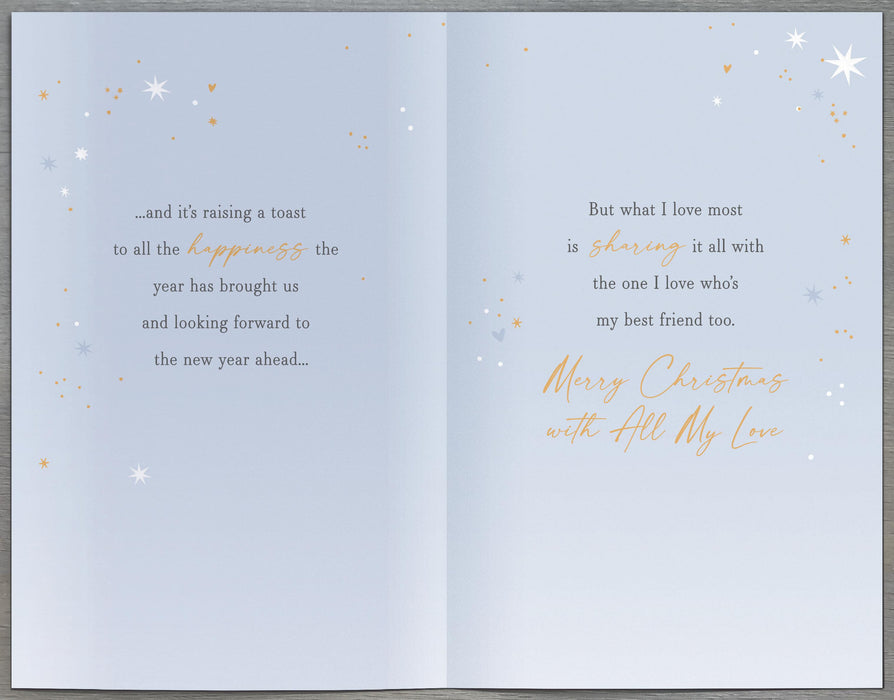 ...and it's raising a toast
to all the happiness the
year has brought us
and looking forward to
the new year ahead...
But what I love most
is sharing it all with
the one I love who's
my best friend too.
Merry Christmas
with All My Love